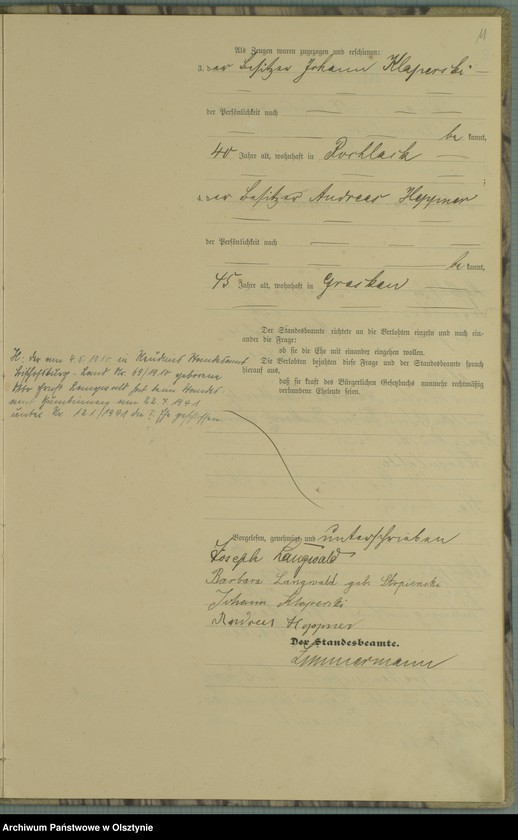 11
Als Zeugen waren zugezogen und erschienen:
3. der Besitzer Johann Klaperski
der Persönlichkeit nach
be kannt,
40 Jahre alt, wohnhaft in Rochlack
4. der Besitzer Andreas Heppner
der Persönlichkeit nach
be kannt,
45 Jahre alt, wohnhaft in Graskau
Der Standesbeamte richtete an die Verlobten einzeln und nach ein-
ander die Frage:
ob sie die Ehe mit einander eingehen wollen.
Die Verlobten bejahten diese Frage und der Standesbeamte sprach
hierauf aus,
daß sie kraft des Bürgerlichen Gesetzbuchs nunmehr rechtmäßig
verbundene Eheleute seien.
H: Der am 4.6.1910 in Standesamt
Bischofsburg-Land Nr. 69/1910 geborene
Langwald hat beim Standes-
amt Gumbinnen am 22.7.1941
unter Nr. 121/1941 die I. Ehe geschlossen
Vorgelesen, genehmigt und unterschrieben
Joseph Langwald
Barbara Langwald geb.
Johann Klaperski
Andreas Heppner
Der Standesbeamte.
Zimmermann
Archiwum Państwowe w Olsztynie